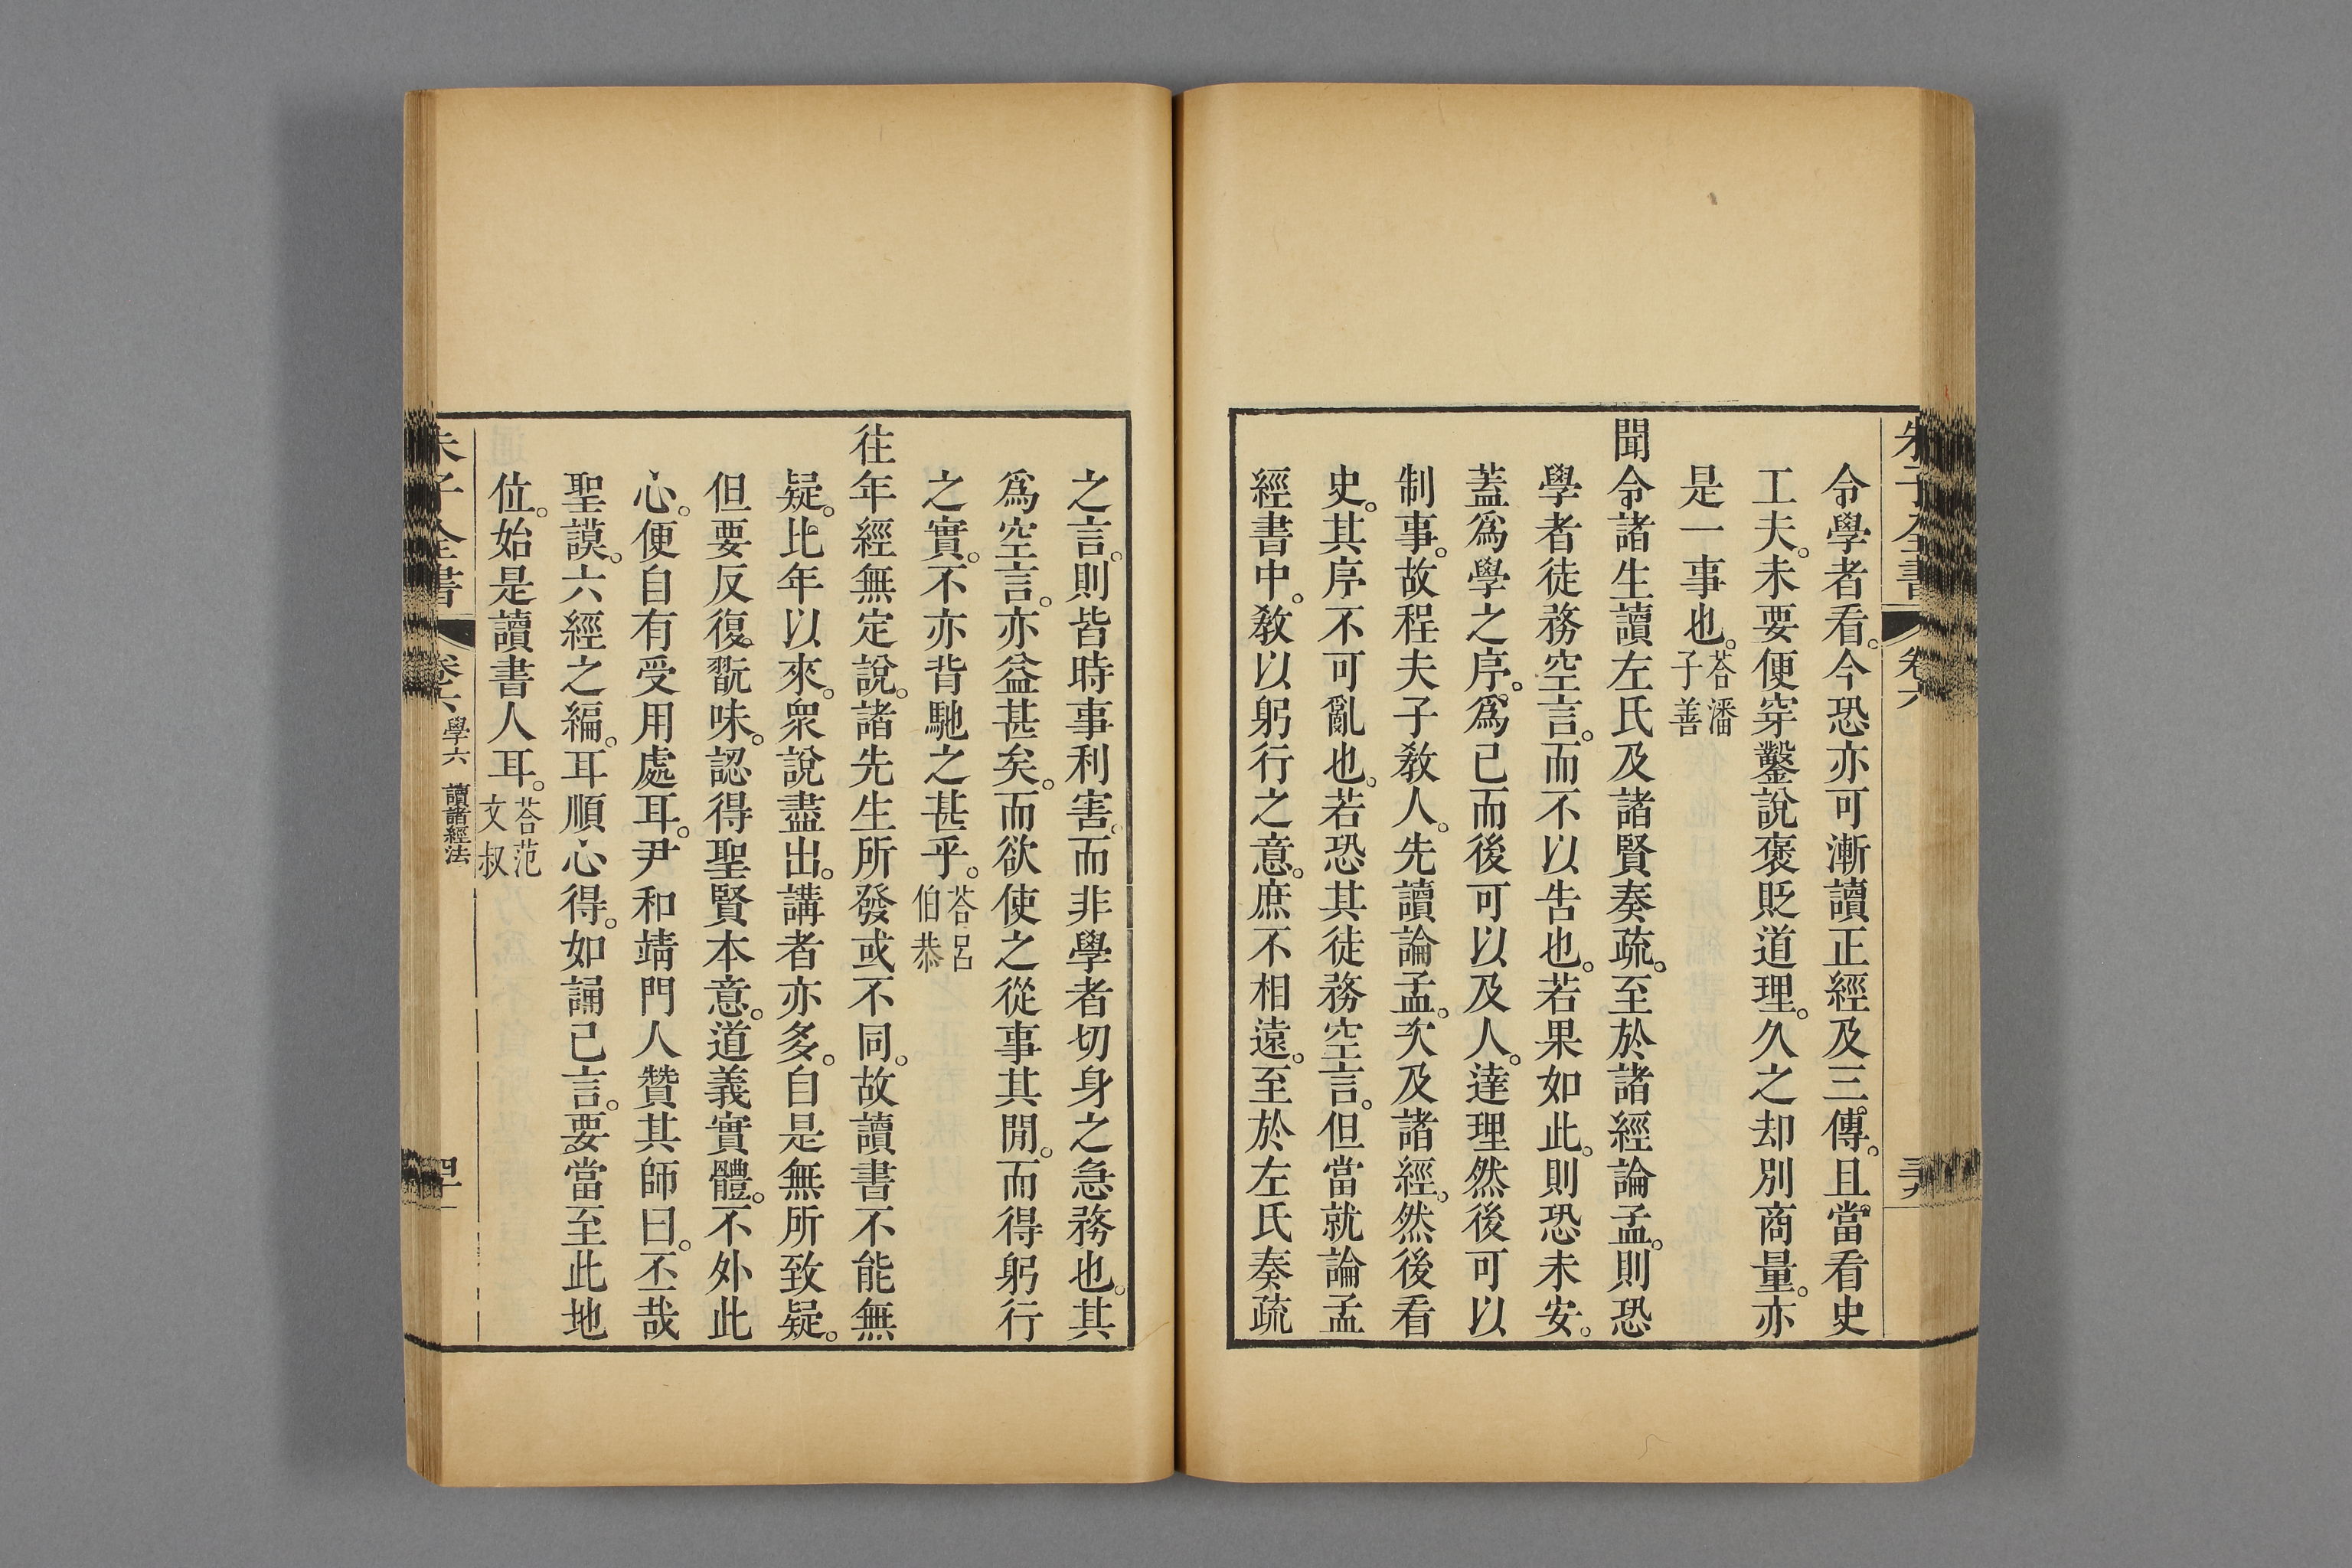 令學者看。今恐亦可漸讀正經及三傳。且當看史
工夫。未要便穿鑿說褒貶道理。久之却別商量。亦
是一事也。荅潘子善
聞令諸生讀左氏及諸賢奏疏。至於諸經論孟。則恐
學者徒務空言。而不以告也。若果如此。則恐未安。
蓋爲學之序。爲已而後可以及人。達理然後可以
制事。故程夫子敎人。先讀論孟。次及諸經。然後看
史。其序不可亂也。若恐其徒務空言。但當就論孟
經書中。敎以躬行之意。庶不相遠。至於左氏奏疏
之言。則皆時事利害。而非學者切身之急務也。其
爲空言。亦益甚矣。而欲使之從事其閒。而得躬行
之實。不亦背馳之甚乎。荅呂伯恭
往年經無定說。諸先生所發或不同。故讀書不能無
疑。比年以來。衆說盡出。講者亦多。自是無所致疑。
但要反復翫味。認得聖賢本意。道義實體。不外此
心。便自有受用處耳。尹和靖門人贊其師曰。丕哉
聖謨。六經之編。耳順心得。如誦已言。要當至此地
位。始是讀書人耳。荅范文叔
朱子全書 卷六 學六 讀諸經法